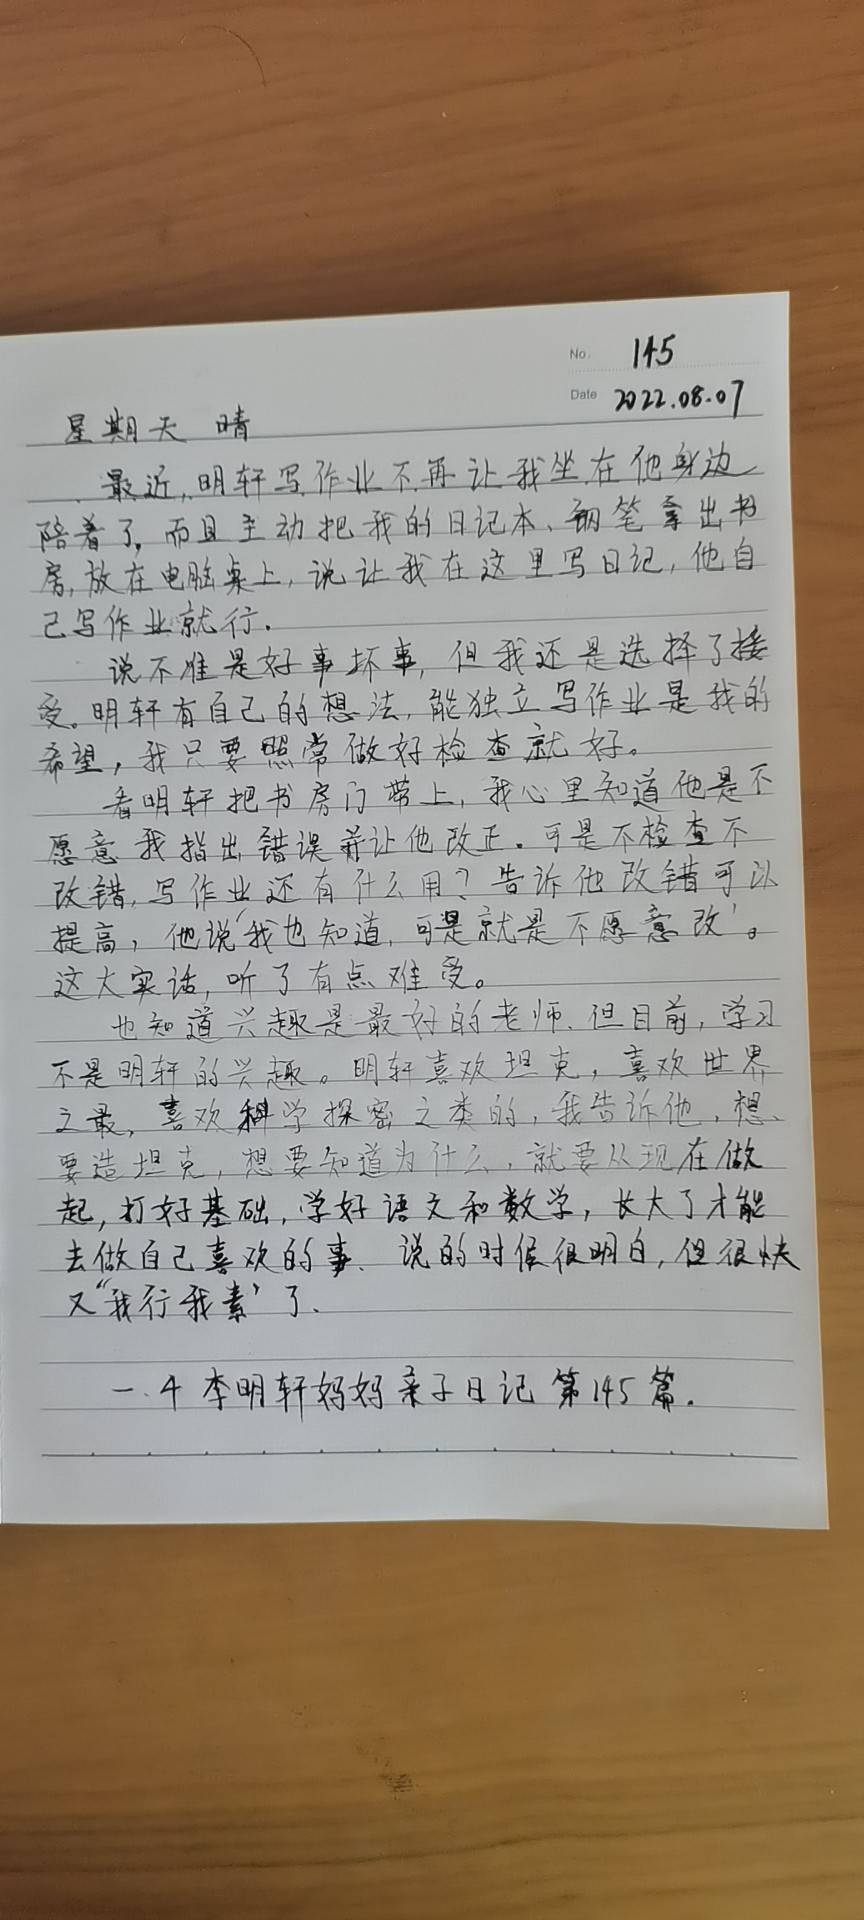 No. 145
Date 2022.08.07
星期天 晴
最近,明轩写作业不再让我坐在他身边
陪着了,而且主动把我的日记本、钢笔拿出书
房,放在电脑桌上,说让我在这里写日记,他自
己写作业就行.
说不准是好事坏事,但我还是选择了接
受。明轩有自己的想法,能独立写作业是我的
希望,我只要照常做好检查就好。
看明轩把书房门带上,我心里知道他是不
愿意我指出错误并让他改正.可是不检查不
改错,写作业还有什么用?告诉他改错可以
提高,他说“我也知道,可是就是不愿意改'。
这大实话,听了有点难受。
也知道兴趣是最好的老师.但目前,学习
不是明轩的兴趣。明轩喜欢坦克,喜欢世界
之最,喜欢科学探密之类的,我告诉他,想、
要造坦克,想要知道为什么,就要从现在做
起,打好基础,学好语文和数学,长大了才能
去做自己喜欢的事、说的时候很明白,但很快
又“我行我素'了.
一.4 李明轩妈妈亲子日记 第145篇.